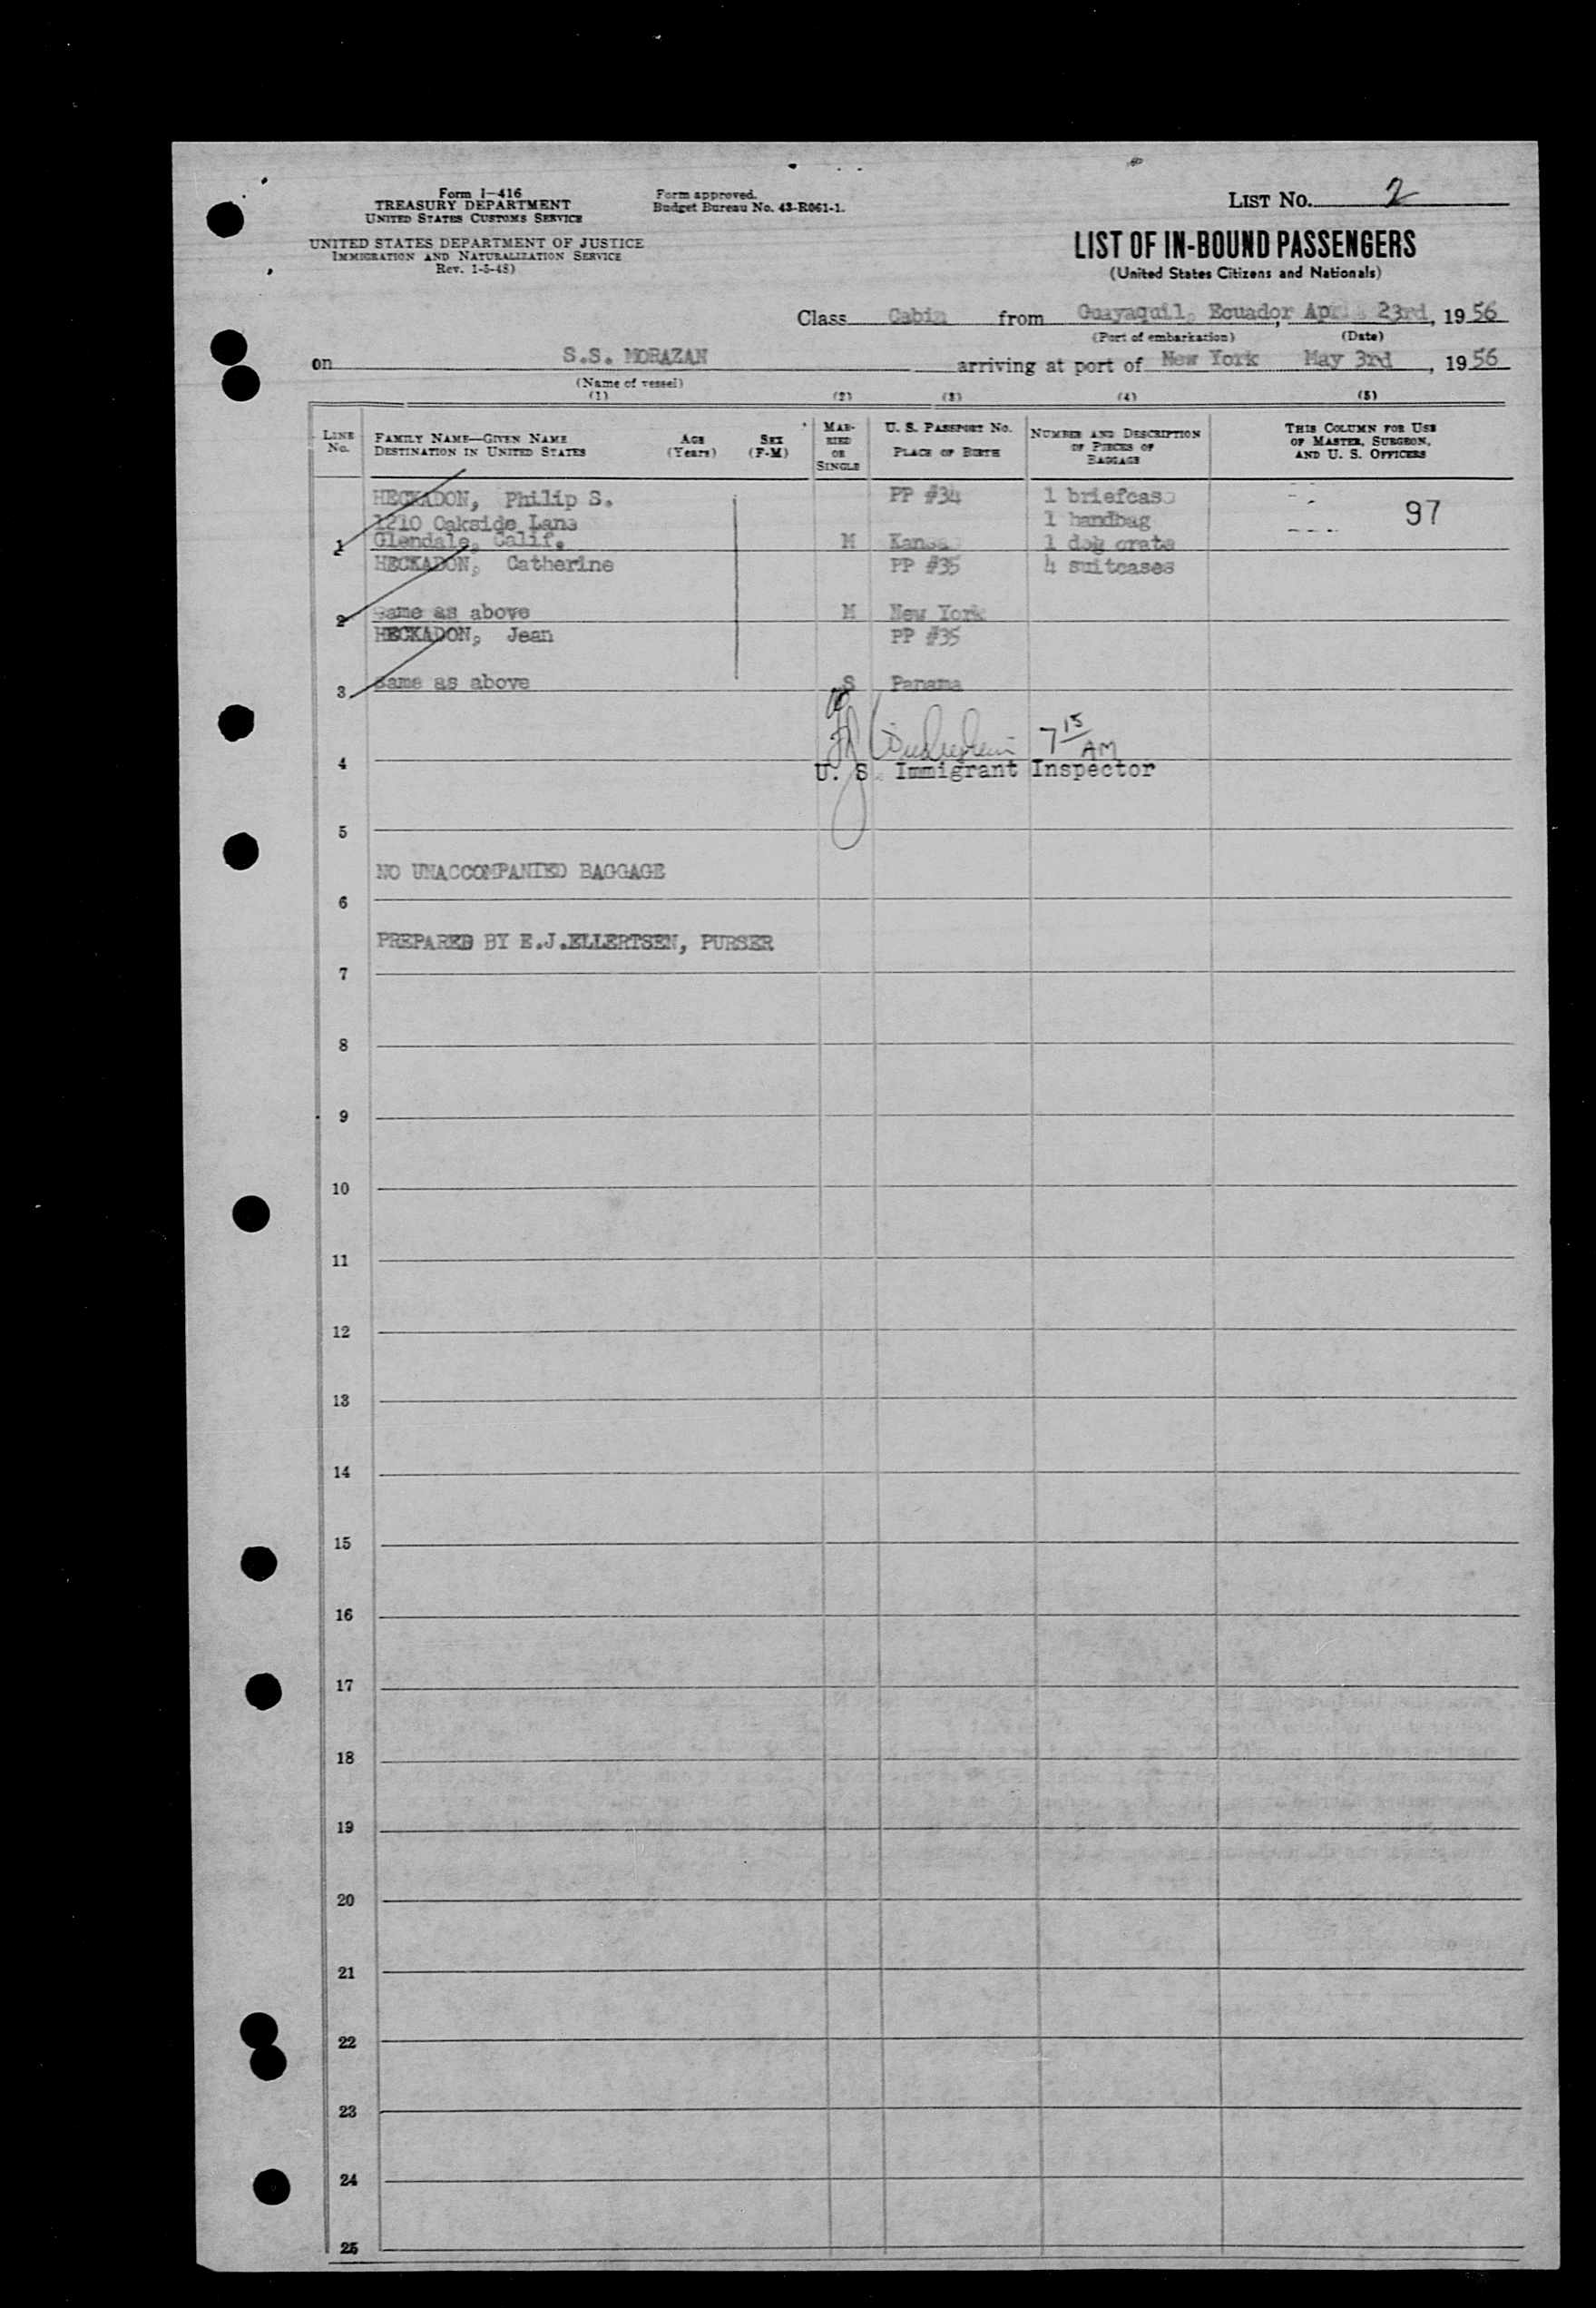 Form I-416
TREASURY DEPARTMENT
UNITED STATES CUSTOMS SERVICE
UNITED STATES DEPARTMENT OF JUSTICE
IMMIGRATION AND NATURALIZATION SERVICE
Rev. 1-5-48)
Form approved.
Budget Bureau No. 43-R061-1.
LIST No. 2
LIST OF IN-BOUND PASSENGERS
(United States Citizens and Nationals)
Class Cabin from Guayaquil, Ecuador, April 23rd, 1956
(Port of embarkation) (Date)
on S.S. MORAZAN arriving at port of New York May 3rd, 1956
(Name of vessel)
(1) (2) (3) (4) (5)
LINE No.
FAMILY NAME—GIVEN NAME
DESTINATION IN UNITED STATES
AGE (Years)
SEX (F-M)
MARRIED OR SINGLE
U. S. PASSPORT NO.
PLACE OF BIRTH
NUMBER AND DESCRIPTION OF PIECES OF BAGGAGE
THIS COLUMN FOR USE OF MASTER, SURGEON, AND U. S. OFFICERS
HECKADON, Philip S. PP #34 1 briefcase
1210 Oakside Lane 1 handbag 97
1 Glendale, Calif. M Kansas 1 dog crate
HECKADON, Catherine PP #35 4 suitcases
2 same as above M New York
HECKADON, Jean PP #35
3 same as above S Panama
7 15 AM
4
U. S. Immigrant Inspector
5
NO UNACCOMPANIED BAGGAGE
6
PREPARED BY E.J.ELLERTSEN, PURSER
7
8
9
10
11
12
13
14
15
16
17
18
19
20
21
22
23
24
25